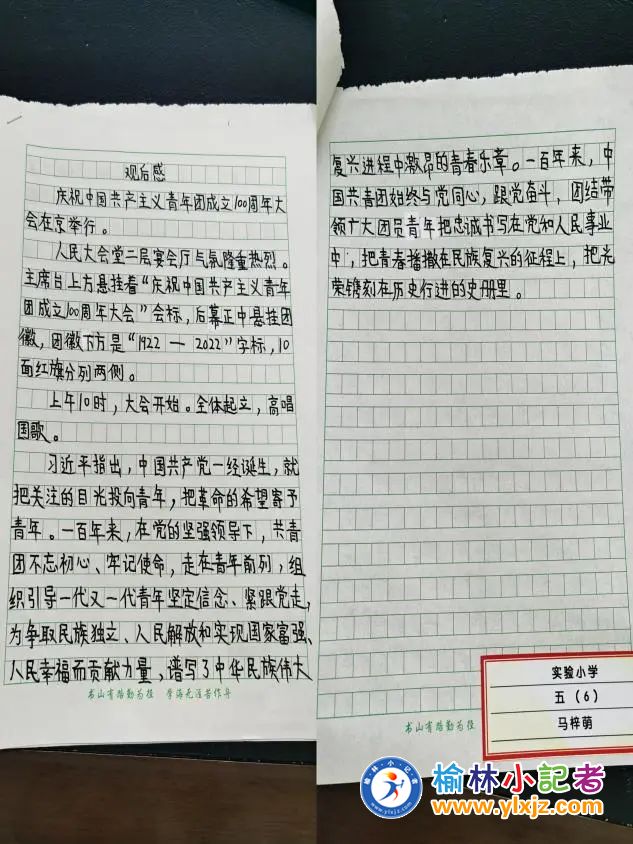 观后感
庆祝中国共产主义青年团成立100周年大
会在京举行。
人民大会堂二层宴会厅气氛隆重热烈。
主席台上方悬挂着“庆祝中国共产主义青年
团成立100周年大会”会标，后幕正中悬挂团
徽，团徽下方是“1922—2022”字标，10
面红旗分列两侧。
上午10时，大会开始。全体起立，高唱
国歌。
习近平指出，中国共产党一经诞生，就
把关注的目光投向青年，把革命的希望寄予
青年。一百年来，在党的坚强领导下，共青
团不忘初心、牢记使命，走在青年前列，组
织引导一代又一代青年坚定信念、紧跟党走，
为争取民族独立、人民解放和实现国家富强、
人民幸福而贡献力量，谱写了中华民族伟大
书山有路勤为径 学海无涯苦作舟
复兴进程中激昂的青春乐章。一百年来，中
国共青团始终与党同心，跟党奋斗，团结带
领广大团员青年把忠诚书写在党和人民事业
中，把青春播撒在民族复兴的征程上，把光
荣镌刻在历史行进的史册里。
书山有路勤为径
实验小学
五（6）
马梓萌
榆林小记者
榆林小記者
www.ylxjz.com